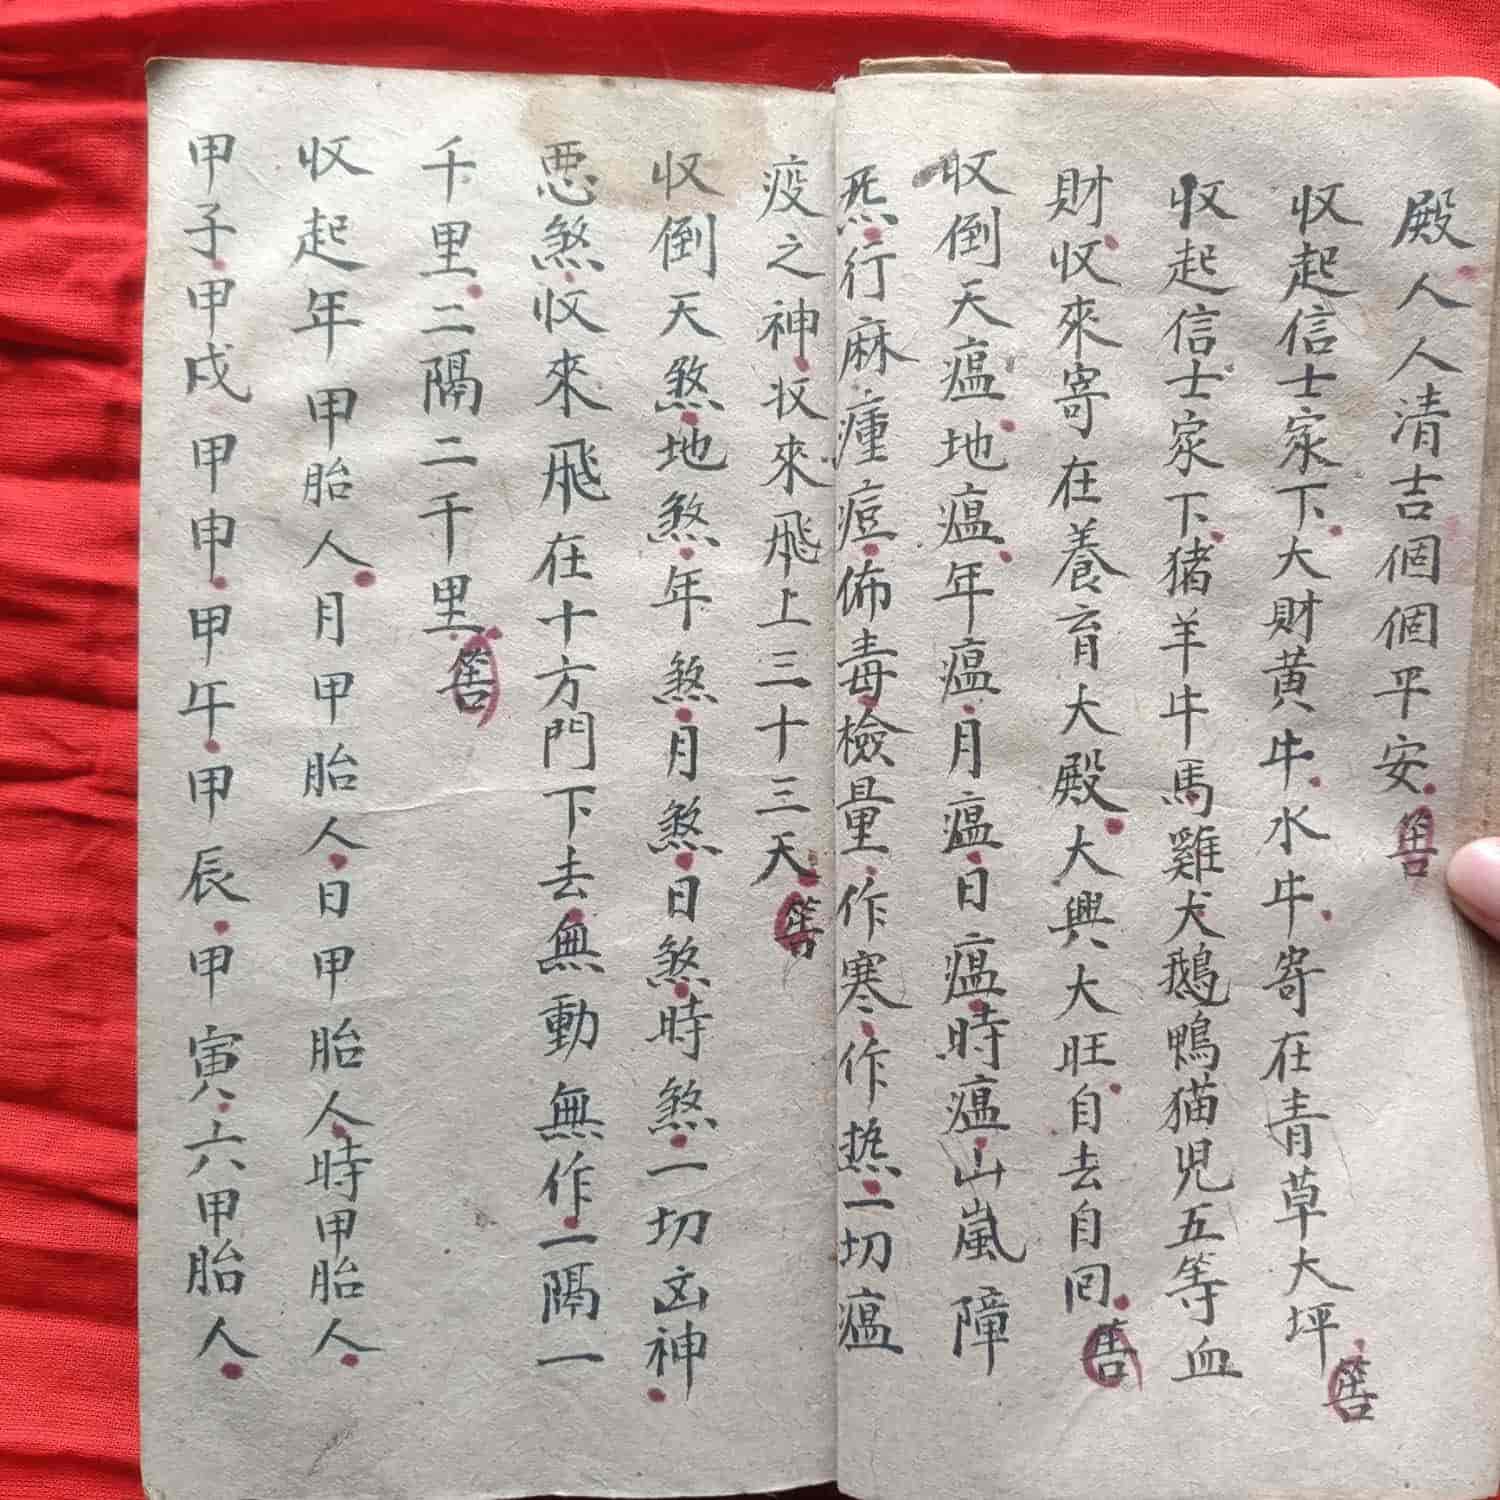 殿人人清吉個個平安筶
收起信士家下大財黄牛水牛寄在青草大坪筶
收起信士家下猪羊牛馬雞犬鵝鴨猫児五等血
財收來寄在養育大殿大興大旺自去自回筶
收倒天瘟地瘟年瘟月瘟日瘟時瘟山嵐障
炁行麻瘇痘佈毒檢量作寒作热一切瘟
疫之神收來飛上三十三天筶
收倒天煞地煞年煞月煞日煞時煞一切凶神
恶煞收來飛在十方門下去無動無作一隔一
千里二隔二千里筶
收起年甲胎人月甲胎人日甲胎人時甲胎人
甲子甲戍甲申甲午甲辰甲寅六甲胎人